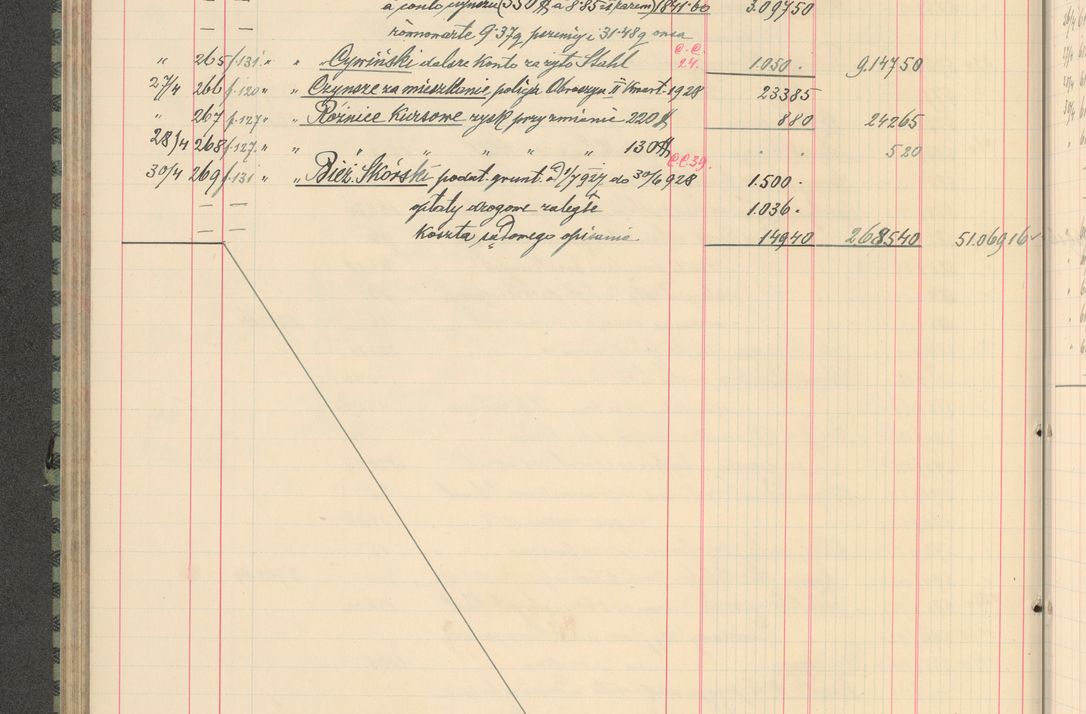 a conto czynszu (350 $ à 8.85 1841-60 3.09750
— — równowarte 9.37q pszenicy i 31.48q owsa
" 265 f.131. " " Cywiński dalsze konto za żyto Stahl C.C. 24. 1.050. 9.14750
27/4 266 f.120 " " Czynsze za mieszkanie policja Obroszyn II kwart. 1928 23385
" 267 f.127. " " Różnice Kursowe zysk przy zmianie 220 $ 880 24265
28/4 268 f.127. " " " " " " 130 $ . . 520
30/4 269 f.131 " " Bież. Skórski podat. grunt. od 1/7 927 do 30/6 928 C.C.39. 1.500.
— — opłaty drogowe zaległe 1.036.
— — Koszta sądowego opisania 14940 268540 51.06916